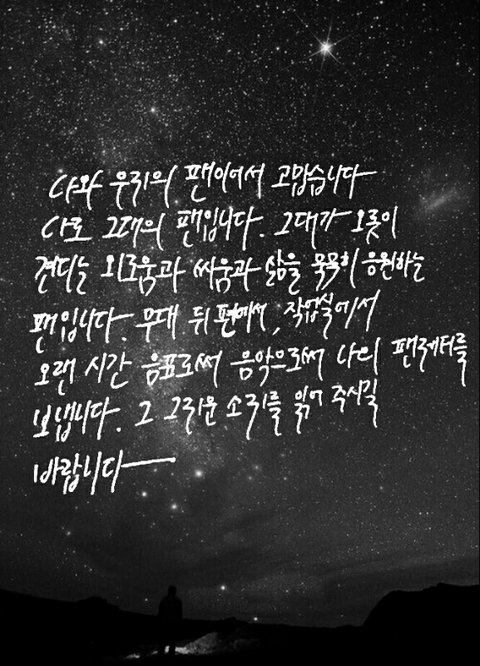 나와 우리의 팬이어서 고맙습니다
나도 그대의 팬입니다. 그대가 오롯이
견디는 외로움과 싸움과 삶을 묵묵히 응원하는
팬입니다. 무대 뒤 편에서, 작업실에서
오랜 시간 음표로써 음악으로써 나의 팬레터를
보냅니다. 그 그리운 소리를 읽어 주시길
바랍니다